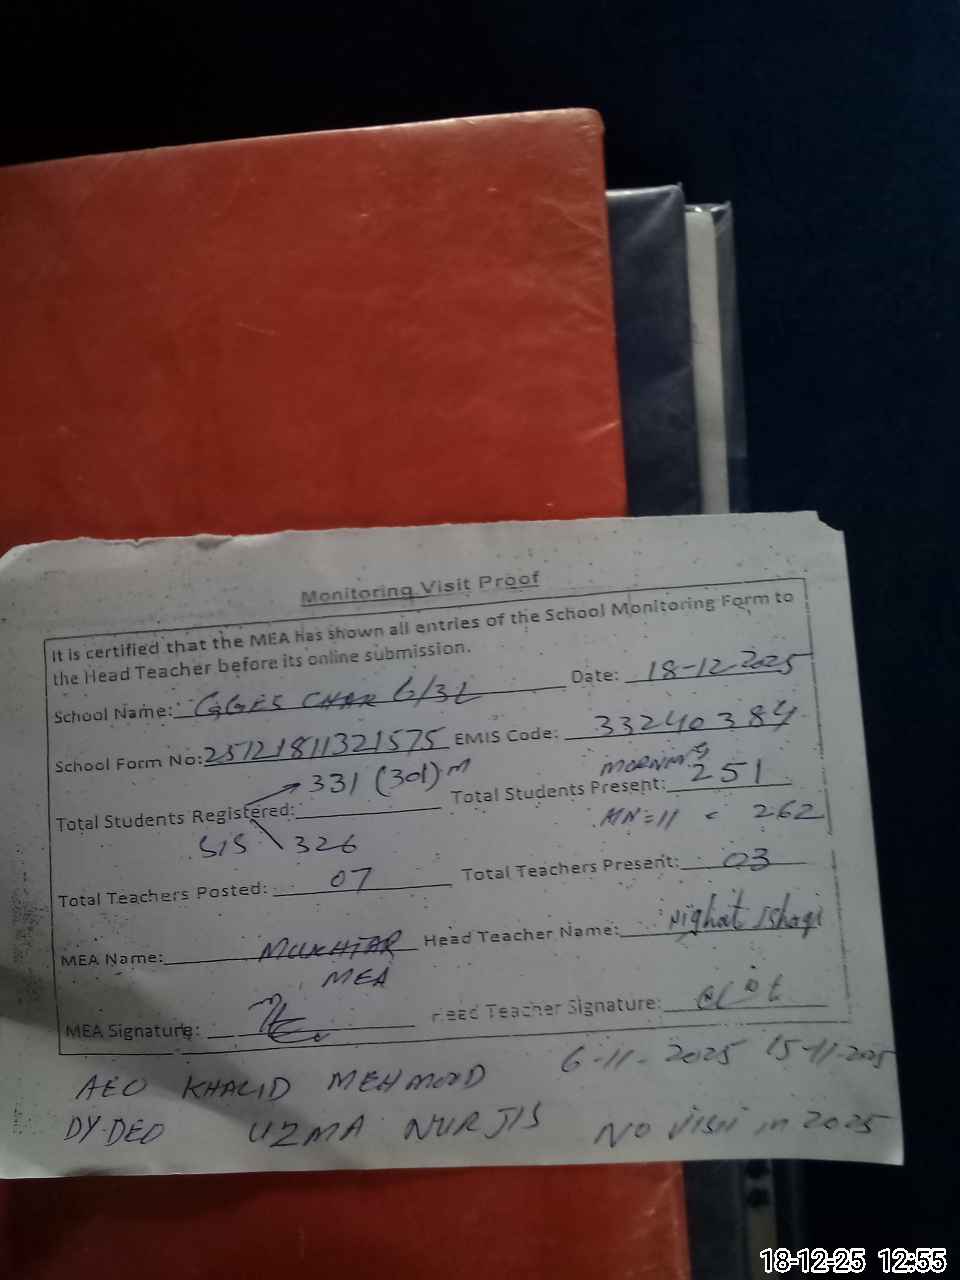 Monitoring Visit Proof
It is certified that the MEA has shown all entries of the School Monitoring Form to
the Head Teacher before its online submission.
School Name: GGES CHAK 6/3L Date: 18-12-2025
School Form No: 25121811321575 EMIS Code: 33240384
331 (301) M MORNING
Total Students Registered: Total Students Present: 251
SIS 326 MN=11 262
Total Teachers Posted: 07 Total Teachers Present: 03
MEA Name: MUKHTAR Head Teacher Name: Nighat Ishaqi
MEA
MEA Signature: Head Teacher Signature:
AEO KHALID MEHMOOD 6-11-2025 15-11-2025
DY-DEO UZMA NURJIS NO visit in 2025
18-12-25 12:55